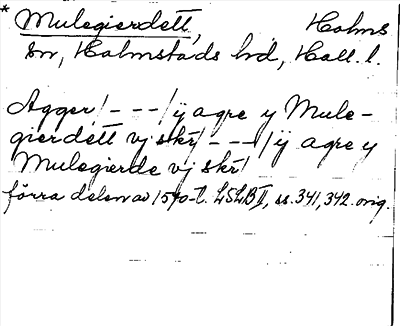 * Mulegierdett, Holms
sn, Halmstads hd, Hall. l.
Agger/ - - - / ij agre y Mule-
gierdett vj skr/ - - - / ij agre y
Mulegierde vj skr/
förra delen av 1590-t. LSLB II, ss. 341, 342. orig.